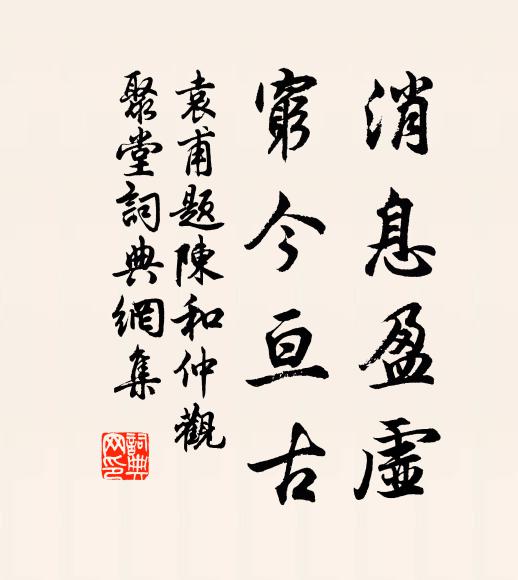 消息盈虛
窮今亘古
袁甫題陳和仲觀
聚堂詞典網集
詞典網印